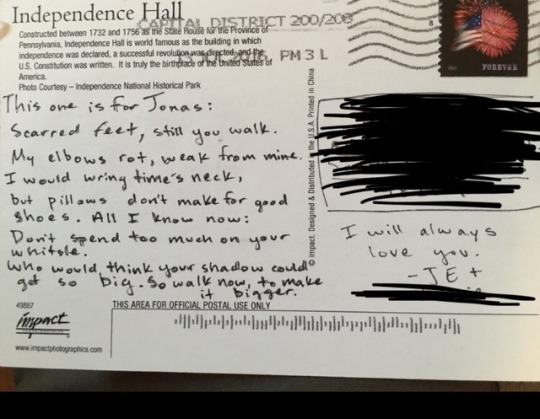 Independence Hall
CAPITAL DISTRICT 200/208
Constructed between 1732 and 1756 as the State House for the Province of
Pennsylvania, Independence Hall is world famous as the building in which
independence was declared, a successful revolution was directed, and the
U.S. Constitution was written. It is truly the birthplace of the United States of
America.
2016 PM 3 L
Photo Courtesy – Independence National Historical Park
FOREVER
This one is for Jonas:
Scarred feet, still you walk.
My elbows rot, weak from mine.
I would wring time's neck,
but pillows don't make for good
shoes. All I know now:
Don't spend too much on your
whitsle.
Who would, think your shadow could
get so big. So walk now, to make
it bigger.
© Impact, Designed & Distributed in the U.S.A. Printed in China
I will always
love you.
- JE +
49887
impact
www.impactphotographics.com
THIS AREA FOR OFFICIAL POSTAL USE ONLY